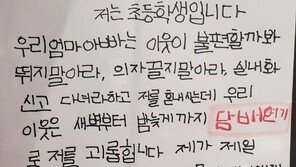 저는 초등학생입니다
우리엄마아빠는 이웃이 불편할까봐
뛰지말아라, 의자끌지말아라, 실내화
신고 다녀라하고 저를 혼내싰는데 우리
이웃은 새벽부터 밤늦게까지 담배연기
로 저를 괴롭힙니다 제가 제일